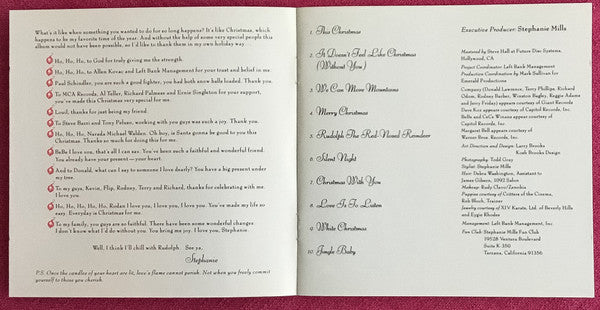 What's it like when something you wanted to do for so long happens? It's like Christmas, which
happens to be my favorite time of the year. And without the help of some very special people this
album would not have been possible, so I'd like to thank them in my own holiday way
Ho, Ho, Ho, to God for truly giving me the strength.
Ho, Ho, Ho, to Allen Kovac and Left Bank Management for your trust and belief in me.
Paul Schindler, you are such a good fighter, you had both snow balls loaded. Thank you.
To MCA Records, Al Teller, Richard Palmese and Ernie Singleton for your support,
you've made this Christmas very special for me.
Louil, thanks for just being my friend.
To Steve Barri and Tony Peluso, working with you guys was such a joy. Thank you.
Ho, Ho, Ho, Narada Michael Walden. Oh boy, is Santa gonna be good to you this
Christmas. Thanks so much for doing this for me.
BeBe I love you, that's all I can say. You've been such a faithful and wonderful friend.
You already have your present — your heart.
And to Donald, what can I say to someone I love dearly? You have a big present under
my tree.
To my guys, Kevin, Flip, Rodney, Terry and Richard, thanks for celebrating with me.
I love you.
Ho, Ho, Ho, Ho, Ho, Rodan I love you, I love you, I love you. You've made my life so
easy. Everyday is Christmas for me.
To my family, you guys are so faithful. There have been some wonderful changes.
I don't know what I'd do without you. You bring me joy. I love you, Stephanie
Well, I think I'll chill with Rudolph... See ya,
Stephanie
P.S. Once the candles of your heart are lit, love's flame cannot perish. Not when you freely commit
yourself to those you cherish.
1. This Christmas
2. It Doesn't Feel Like Christmas
(Without You)
3. We Can Move Mountains
4. Merry Christmas
5. Rudolph The Red-Nosed Reindeer
6. Silent Night
7. Christmas With You
8. Love Is To Listen
9. White Christmas
10. Jingle Baby
Executive Producer: Stephanie Mills
Mastered by Steve Hall at Future Disc Systems,
Hollywood, CA
Project Coordinator: Left Bank Management
Production Coordination by Mark Sullivan for
Emerald Productions
Company (Donald Lawrence, Terry Phillips, Richard
Odom, Rodney Barber, Winston Bagley, Reggie Adams
and Jerry Friday) appears courtesy of Giant Records
Dave Koz appears courtesy of Capitol Records, Inc.
BeBe and CeCe Winans appear courtesy of
Capitol Records, Inc.
Margaret Bell appears courtesy of
Warner Bros. Records, Inc.
Art Direction and Design: Larry Brooks
Kosh Brooks Design
Photography: Todd Gray
Stylist: Stephanie Mills
Hair: Debra Washington, Assistant to
James Gibson, 1092 Salon
Makeup: Rudy Clavo/Zanobia
Puppies courtesy of Critters of the Cinema,
Rob Bloch, Trainer
Jewelry courtesy of XIV Karats, Ltd. of Beverly Hills
and Eygie Rhodes
Management: Left Bank Management, Inc.
Fan Club: Stephanie Mills Fan Club
19528 Ventura Boulevard
Suite K-350
Tarzana, California 91356